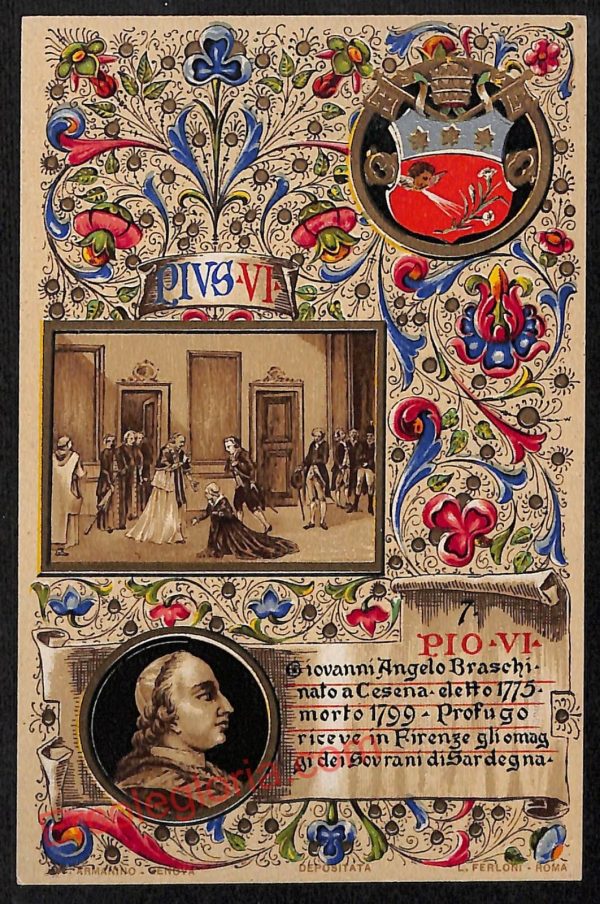 PIVS·VI·
7.
PIO·VI·
Giovanni Angelo Braschi·
nato a Cesena·eletto 1775·
morto 1799 - Profugo
riceve in Firenze gli omag
gi dei Sovrani di Sardegna·
ARMANINO - GENOVA
DEPOSITATA
L. FERLONI - ROMA